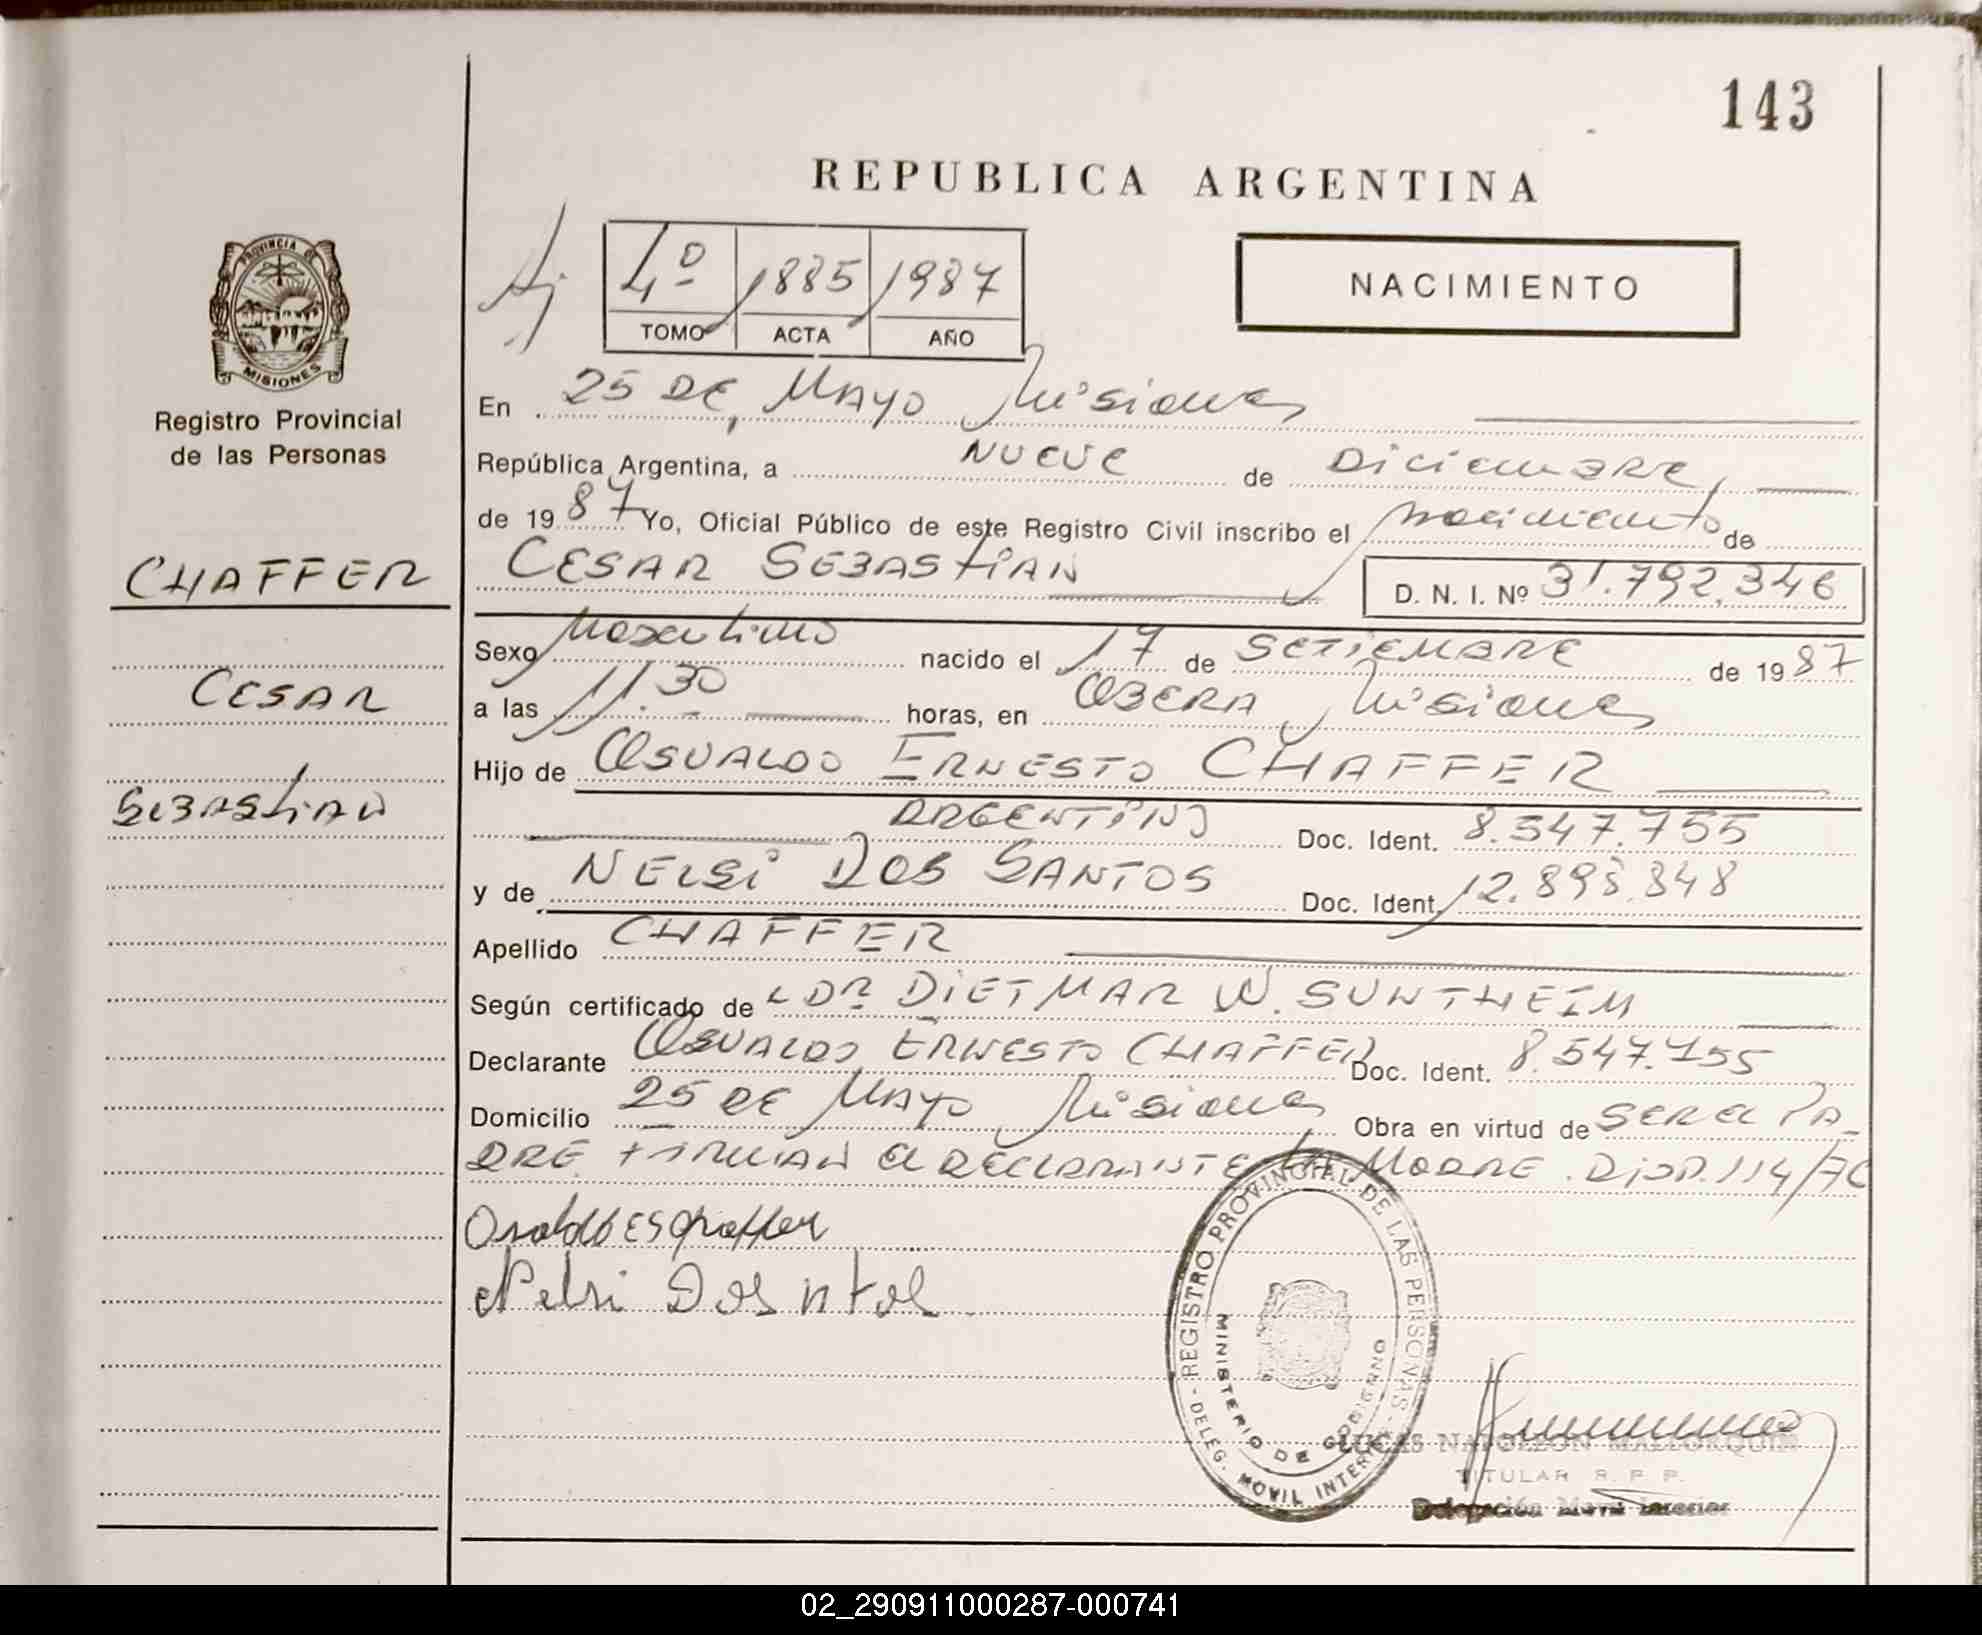 143
REPUBLICA ARGENTINA
PROVINCIA DE
MISIONES
Registro Provincial
de las Personas
CHAFFER
CESAR
SEBASTIAN
4º 1885 1987
TOMO ACTA AÑO
NACIMIENTO
En 25 DE MAYO Misiones
República Argentina, a NUEVE de DICIEMBRE
de 1987 Yo, Oficial Público de este Registro Civil inscribo el nacimiento de
CESAR SEBASTIAN D. N. I. Nº 31.792.346
Sexo Masculino nacido el 17 de SETIEMBRE de 1987
a las 11.30 horas, en OBERA, Misiones
Hijo de OSVALDO ERNESTO CHAFFER
ARGENTINO Doc. Ident. 8.547.755
y de NELSI DOS SANTOS Doc. Ident. 12.898.348
Apellido CHAFFER
Según certificado de DR DIETMAR W. SUNTHEIM
Declarante OSVALDO ERNESTO CHAFFER Doc. Ident. 8.547.755
Domicilio 25 DE MAYO Misiones Obra en virtud de SER EL PA-
DRE. FIRMAN EL DECLARANTE LA MADRE. DISP. 114/76
Nelsi Dos
REGISTRO PROVINCIAL DE LAS PERSONAS
MINISTERIO DE GOBIERNO
DELEG. MOVIL INTERIOR
LUCAS NAPOLEON MALLORQUIN
TITULAR R. P. P.
Delegación Movil Interior
02_290911000287-000741